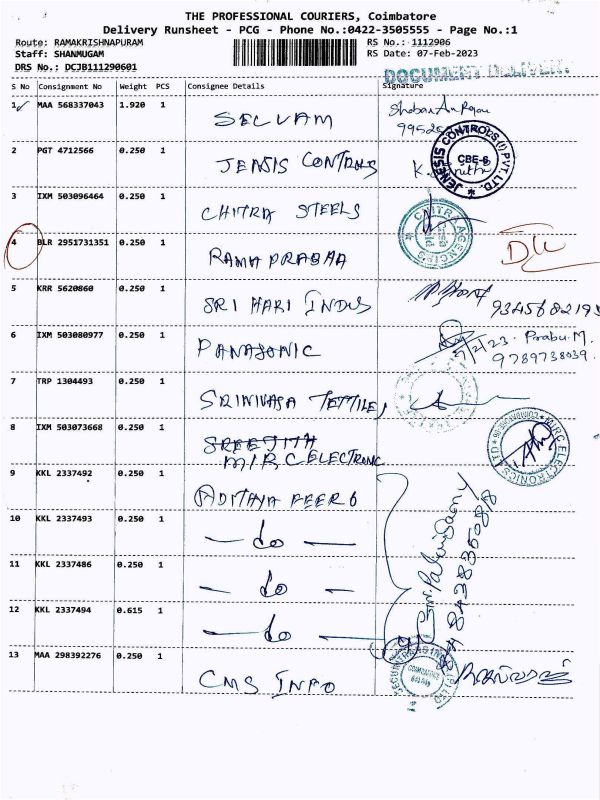 THE PROFESSIONAL COURIERS, Coimbatore
Delivery Runsheet - PCG - Phone No.:0422-3505555 - Page No.:1
Route: RAMAKRISHNAPURAM RS No.: 1112906
Staff: SHANMUGAM RS Date: 07-Feb-2023
DRS No.: DCJB111290601
S No Consignment No Weight PCS Consignee Details Signature
1 MAA 568337043 1.920 1 SELVAM
2 PGT 4712566 0.250 1 JENSIS CONTROLS
JENESIS CONTROLS (I) PVT. LTD. CBE-6
3 IXM 503096464 0.250 1 CHITRA STEELS
CHITRA AGENCIES
4 BLR 2951731351 0.250 1 RAMA PRABHA
5 KRR 5620860 0.250 1 SRI HARI INDUS
6 IXM 503080977 0.250 1 PANASONIC Prabu.M.
9789738039.
7 TRP 1304493 0.250 1 SRINIVASA TETTILE
8 IXM 503073668 0.250 1 SREEJITH
MIRC ELECTRONIC
MIRC ELECTRONICS LTD
9 KKL 2337492 0.250 1 ADITHYA FEER6
10 KKL 2337493 0.250 1 — do —
11 KKL 2337486 0.250 1 — do —
12 KKL 2337494 0.615 1 — do —
13 MAA 298392276 0.250 1 CMS INFO